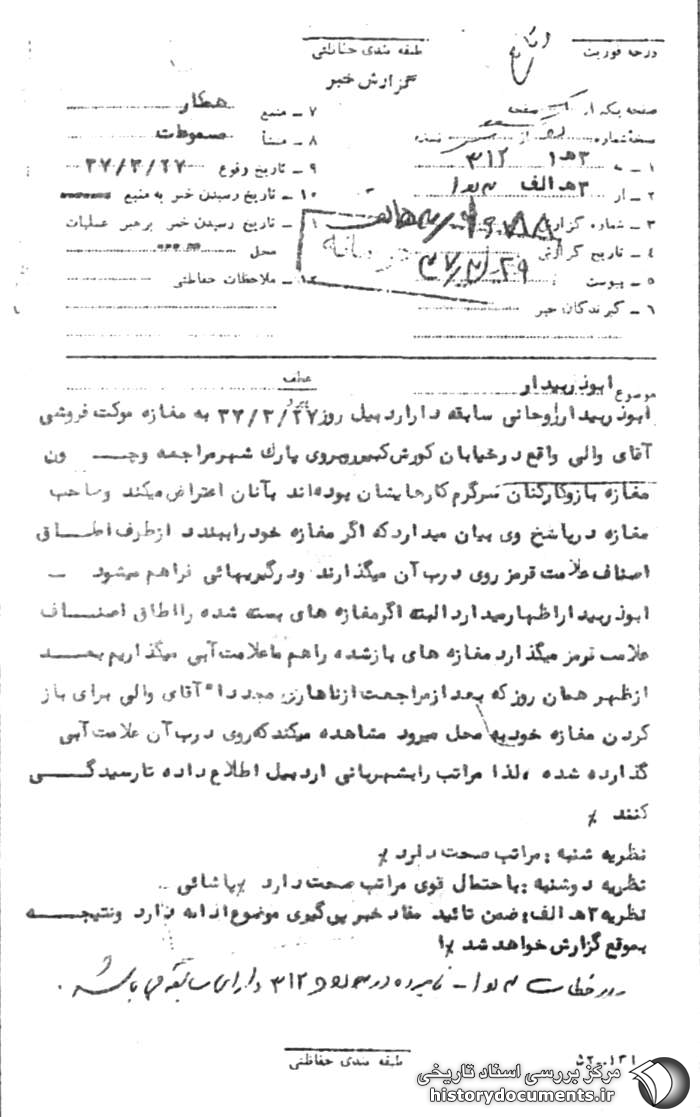 درجه فوریت
طبقه بندی حفاظتی
گزارش خبر
صفحه یکم از یک صفحه
نسخهٔ شماره از نسخه
۱ ـ به ۳هـ۱ ۳۱۲
۲ ـ از ۳هـ الف
۳ ـ شماره گزارش
۴ ـ تاریخ گزارش ۳۷/۳/۲۹
۵ ـ پیوست
۶ ـ گیرندگان خبر
۷ ـ منبع همکار
۸ ـ منشأ مسموعات
۹ ـ تاریخ وقوع ۳۷/۳/۲۷
۱۰ ـ تاریخ رسیدن خبر به منبع
۱۱ ـ تاریخ رسیدن خبر برهبر عملیات
محل
۱۲ ـ ملاحظات حفاظتی
موضوع ابوذر بیدار
عطف
ابوذر بیدار روحانی سابقه دار اردبیل روز ۳۷/۳/۲۷ به مغازه موکت فروشی
آقای والی واقع در خیابان کورش کبیر روبروی پارك شهر مراجعه وچـــ ون
مغازه باز وکارکنان سرگرم کارهایشان بوده اند بآنان اعتراض میکند وصاحب
مغازه در پاسخ وی بیان میدارد که اگر مغازه خود را ببندد از طرف اطــاق
اصناف علامت قرمز روی درب آن میگذارند ودرگیریهائی فراهم میشود ـ
ابوذر بیدار اظهار میدارد البته اگر مغازه های بسته شده را اطاق اصنــاف
علامت قرمز میگذارد مغازه های باز شده را هم ما علامت آبی میگذاریم بعــد
از ظهر همان روز که بعد از مراجعت از ناهار مجددا" آقای والی برای باز
کردن مغازه خود به محل میرود مشاهده میکند که روی درب آن علامت آبی
گذارده شده ، لذا مراتب را بشهربانی اردبیل اطلاع داده تا رسیدگــی
کنند ٪
نظریه شنبه : مراتب صحت دارد ٪
نظریه دوشنبه : با احتمال قوی مراتب صحت دارد ٪ پاشائی
نظریه ۳هـ الف : ضمن تائید مفاد خبر پی گیری موضوع ادامه دارد ونتیجــه
بموقع گزارش خواهد شد ٪ا
نامبرده در ۳۱۲ دارای سابقه می باشد .
طبقه بندی حفاظتی
۵۲-۱۳۱
مرکز بررسی اسناد تاریخی
historydocuments.ir